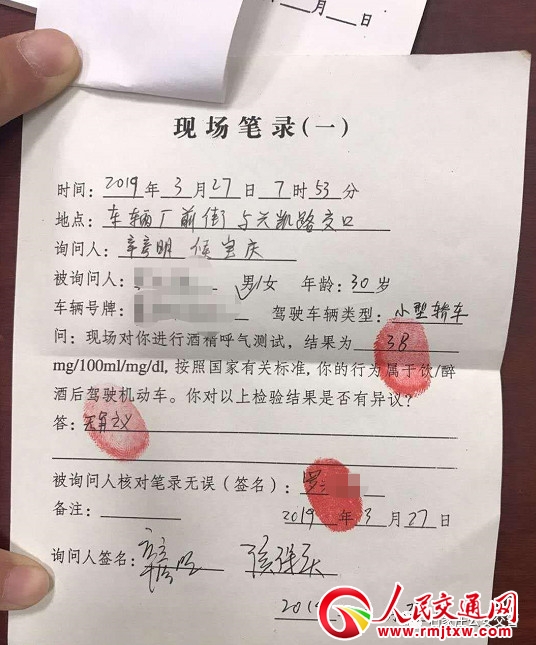 月 日
现场笔录(一)
时间：2019年3月27日7时53分
地点：车辆厂前街与兴凯路交口
询问人：辛彦明 侯宝庆
被询问人： 男/女 年龄：30岁
车辆号牌： 驾驶车辆类型：小型轿车
问：现场对你进行酒精呼气测试，结果为 38
mg/100ml/mg/dl，按照国家有关标准，你的行为属于饮/醉
酒后驾驶机动车。你对以上检验结果是否有异议？
答：无异义
被询问人核对笔录无误（签名）：罗
备注：
2019年3月27日
询问人签名：
201
人民交通网
www.rmjtxw.com